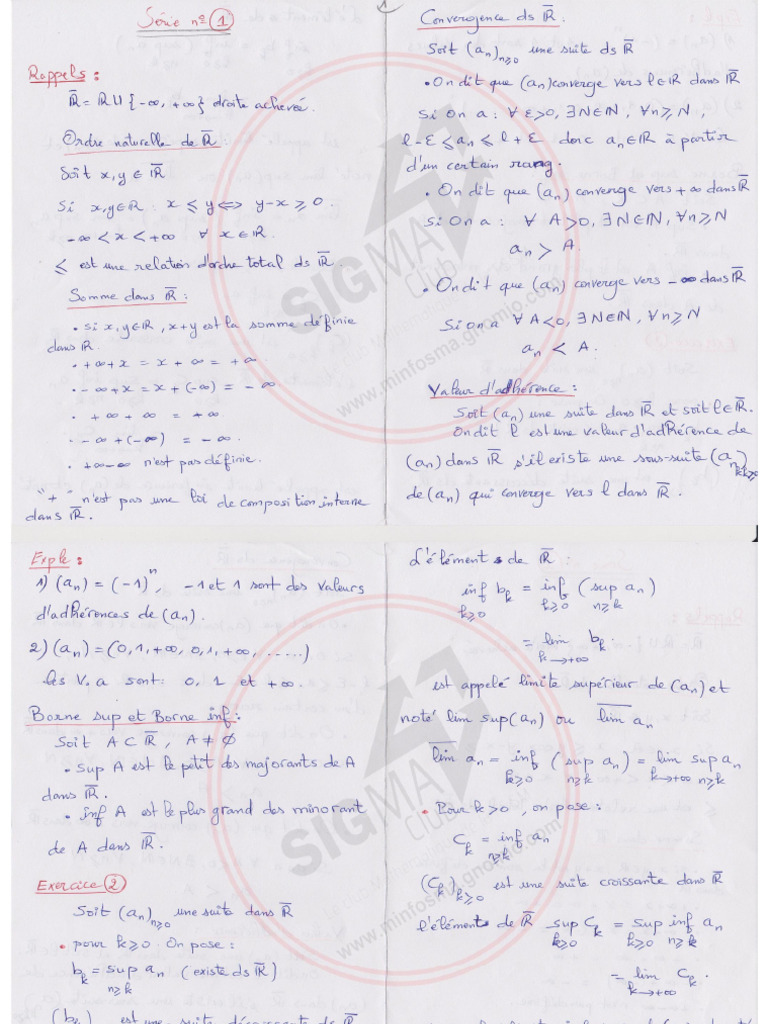 1
Série n° 1
Rappels :
ℝ̄ = ℝ ∪ {-∞, +∞} droite achevée.
Ordre naturelle de ℝ̄
Soit x, y ∈ ℝ̄
Si x, y ∈ ℝ : x ≤ y ⟺ y - x ≥ 0.
-∞ < x < +∞ ∀ x ∈ ℝ.
≤ est une relation d'ordre total ds ℝ̄.
Somme dans ℝ̄ :
• si x, y ∈ ℝ, x + y est la somme définie
dans ℝ.
• +∞ + x = x + ∞ = +∞.
• -∞ + x = x + (-∞) = -∞
• +∞ + ∞ = +∞.
• -∞ + (-∞) = -∞.
• +∞ - ∞ n'est pas définie.
"+" n'est pas une loi de composition interne
dans ℝ̄.
Convergence ds ℝ̄ :
Soit (aₙ)n≥0 une suite ds ℝ̄
• On dit que (aₙ) converge vers l ∈ ℝ dans ℝ̄
Si On a : ∀ ε > 0, ∃ N ∈ ℕ, ∀ n ≥ N,
l - ε ≤ aₙ ≤ l + ε donc aₙ ∈ ℝ à partir
d'un certain rang.
• On dit que (aₙ) converge vers +∞ dans ℝ̄
si On a : ∀ A > 0, ∃ N ∈ ℕ, ∀ n ≥ N
aₙ > A.
• On dit que (aₙ) converge vers -∞ dans ℝ̄
Si On a ∀ A < 0, ∃ N ∈ ℕ, ∀ n ≥ N
aₙ < A.
Valeur d'adhérence :
Soit (aₙ) une suite dans ℝ̄ et soit l ∈ ℝ̄.
On dit l est une valeur d'adhérence de
(aₙ) dans ℝ̄ s'il existe une sous-suite (a_{n_k})k≥0
de (aₙ) qui converge vers l dans ℝ̄.
Exple :
1) (aₙ) = (-1)ⁿ, -1 et 1 sont des valeurs
d'adhérences de (aₙ).
2) (aₙ) = (0, 1, +∞, 0, 1, +∞, .....)
les V.a sont : 0, 1 et +∞.
Borne sup et Borne inf :
Soit A ⊂ ℝ̄, A ≠ ∅
• Sup A est le petit des majorants de A
dans ℝ̄.
• inf A est le plus grand des minorant
de A dans ℝ̄.
Exercice 2
Soit (aₙ)n≥0 une suite dans ℝ̄
• pour k ≥ 0 On pose :
b_k = sup aₙ (existe ds ℝ̄)
n≥k
(b_k) est une suite décroissante de ℝ̄
L'élément de ℝ̄ :
inf b_k = inf (sup aₙ)
k≥0 k≥0 n≥k
= lim b_k
k→+∞
est appelé limite supérieur de (aₙ) et
noté lim sup (aₙ) ou l̅i̅m̅ aₙ
l̅i̅m̅ aₙ = inf (sup aₙ) = lim sup aₙ
k≥0 n≥k k→+∞ n≥k
• Pour k > 0, on pose :
C_k = inf aₙ
n≥k
(C_k)k≥0 est une suite croissante dans ℝ̄
l'élément de ℝ̄ sup C_k = sup inf aₙ
k≥0 k≥0 n≥k
= lim C_k.
k→+∞
SIGMA
Club
www.minfosma.gnomio.com
SIGMA
Club
www.minfosma.gnomio.com